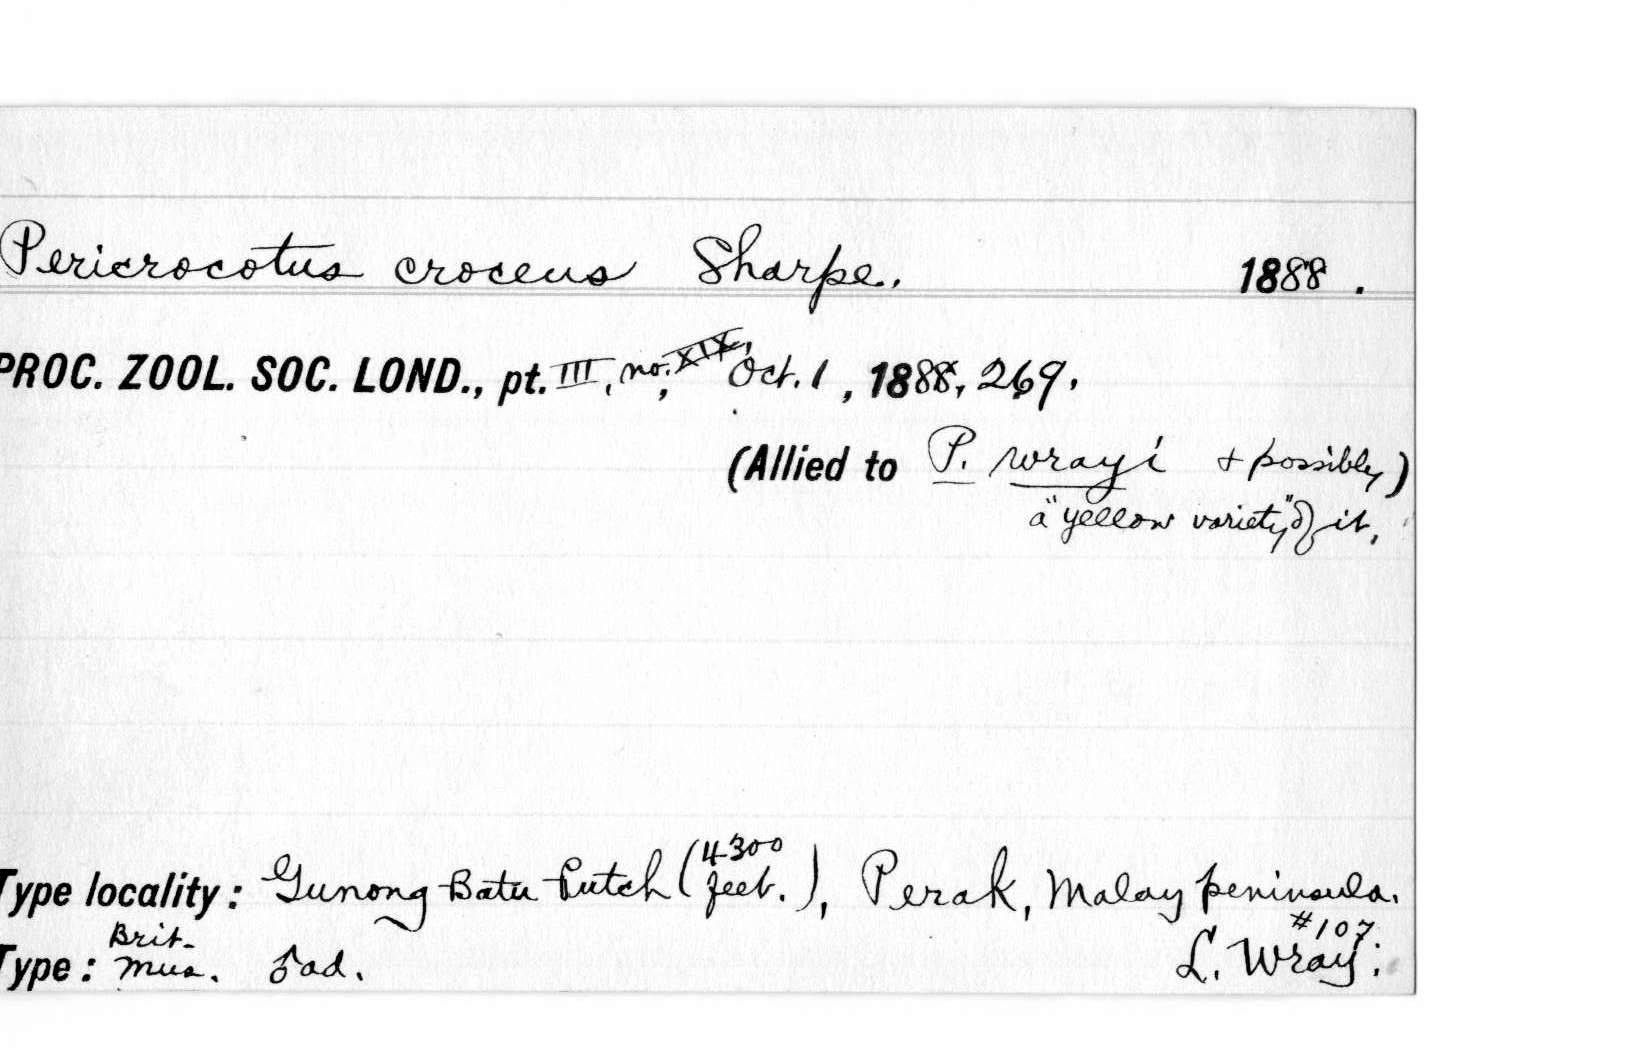 Pericrocotus croceus Sharpe. 1888.
PROC. ZOOL. SOC. LOND., pt. III, no. XIX, Oct. 1, 1888, 269.
(Allied to P. wrayi & possibly)
a "yellow variety" of it.
Type locality: Gunong Batu Putch (4300 feet.), Perak, Malay peninsula.
#107
Type: Brit. Mus. ad. L. Wray: